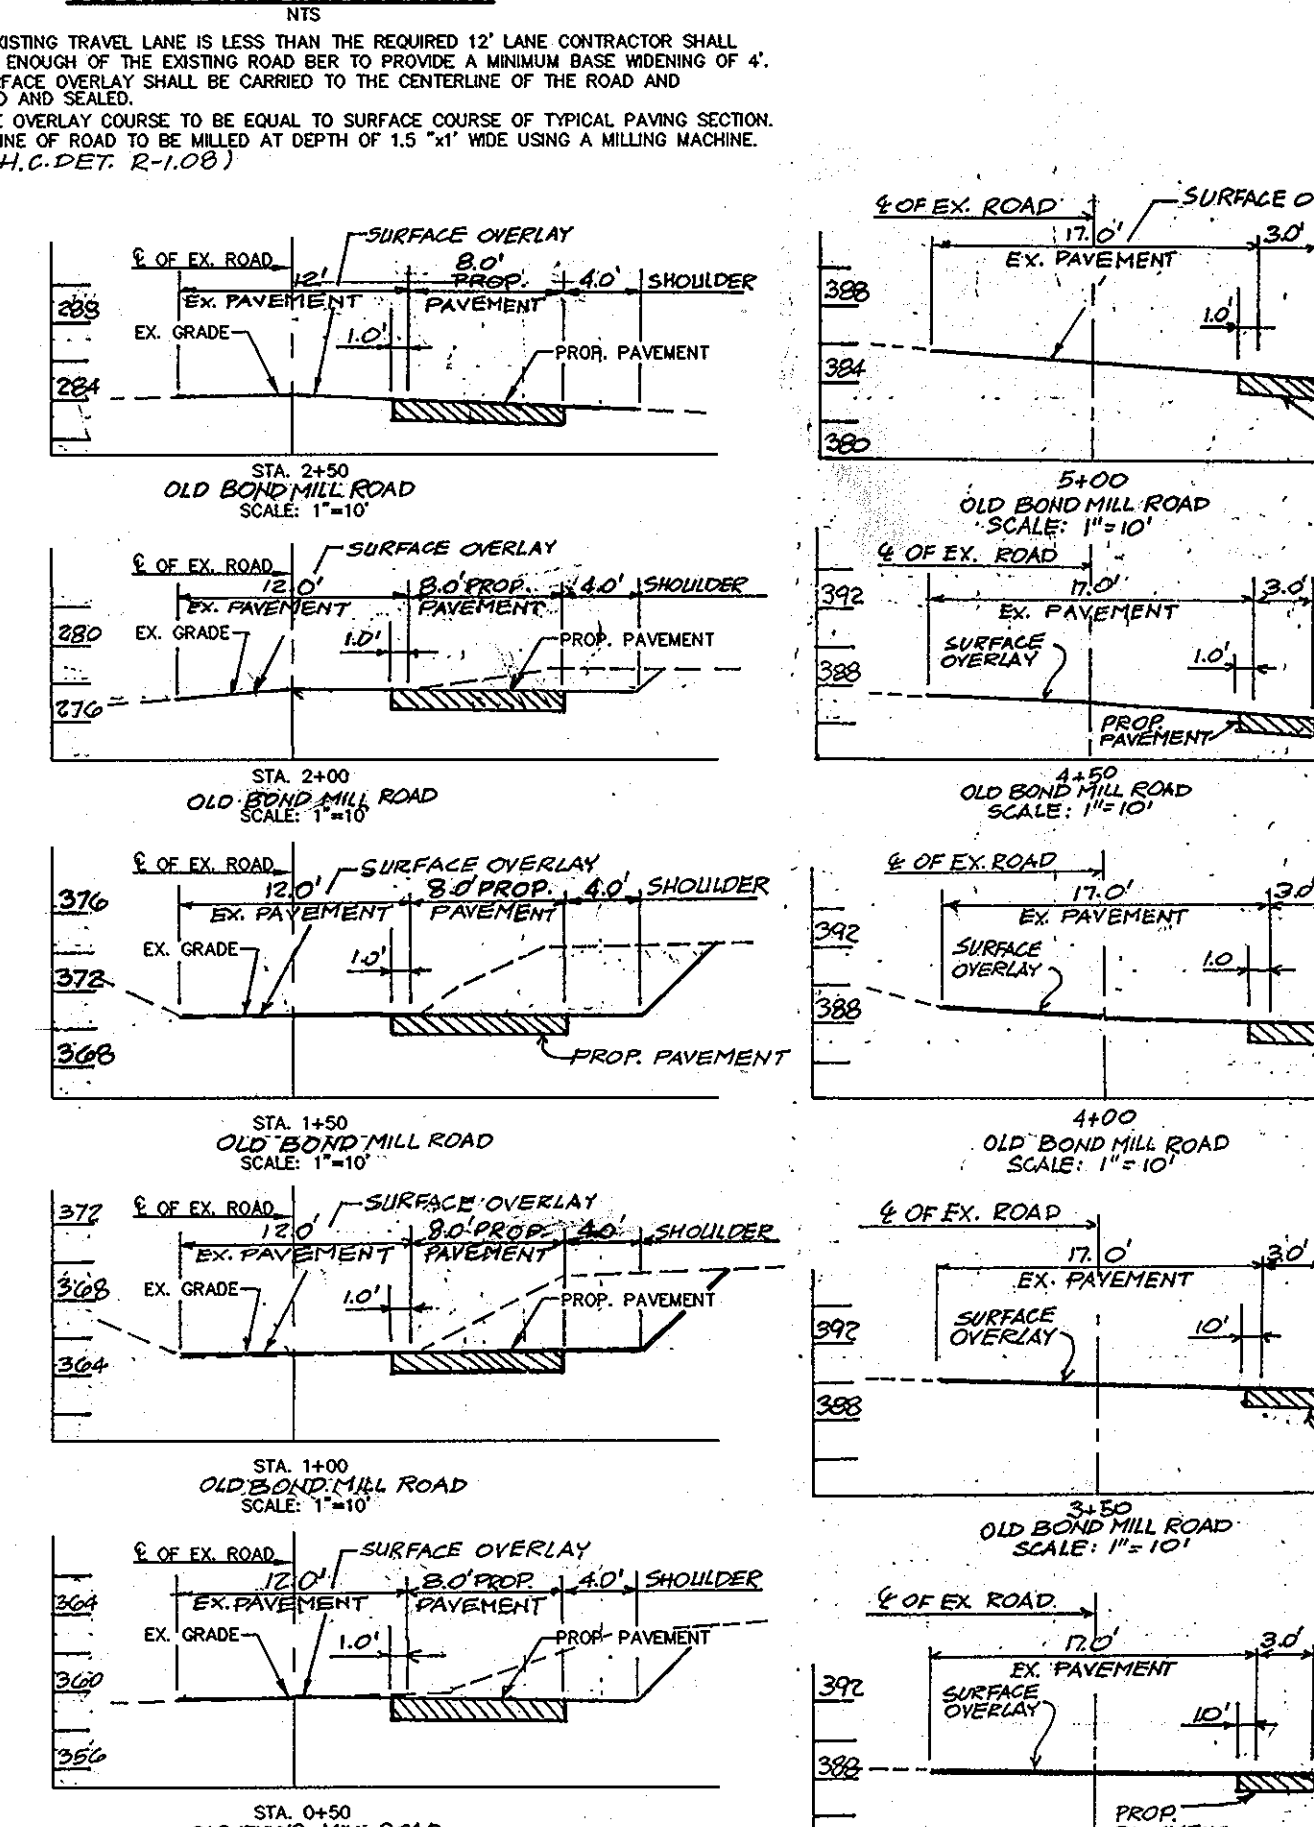 NTS
XISTING TRAVEL LANE IS LESS THAN THE REQUIRED 12' LANE CONTRACTOR SHALL
ENOUGH OF THE EXISTING ROAD BER TO PROVIDE A MINIMUM BASE WIDENING OF 4'.
RFACE OVERLAY SHALL BE CARRIED TO THE CENTERLINE OF THE ROAD AND
D AND SEALED.
E OVERLAY COURSE TO BE EQUAL TO SURFACE COURSE OF TYPICAL PAVING SECTION.
INE OF ROAD TO BE MILLED AT DEPTH OF 1.5 "x1' WIDE USING A MILLING MACHINE.
H.C. DET. R-1.08)
℄ OF EX. ROAD
SURFACE OVERLAY
12'
EX. PAVEMENT
8.0'
PROP.
PAVEMENT
4.0'
SHOULDER
288
EX. GRADE
1.0'
PROP. PAVEMENT
284
STA. 2+50
OLD BOND MILL ROAD
SCALE: 1"=10'
℄ OF EX. ROAD
SURFACE OVERLAY
12.0'
EX. PAVEMENT
8.0' PROP.
PAVEMENT
4.0'
SHOULDER
280
EX. GRADE
1.0'
PROP. PAVEMENT
276
STA. 2+00
OLD BOND MILL ROAD
SCALE: 1"=10'
℄ OF EX. ROAD
SURFACE OVERLAY
376
12.0'
EX. PAVEMENT
8.0' PROP.
PAVEMENT
4.0'
SHOULDER
EX. GRADE
1.0'
372
368
PROP. PAVEMENT
STA. 1+50
OLD BOND MILL ROAD
SCALE: 1"=10'
372
℄ OF EX. ROAD
SURFACE OVERLAY
12.0'
EX. PAVEMENT
8.0' PROP.
PAVEMENT
4.0'
SHOULDER
368
EX. GRADE
1.0'
PROP. PAVEMENT
364
STA. 1+00
OLD BOND MILL ROAD
SCALE: 1"=10'
℄ OF EX. ROAD
SURFACE OVERLAY
12.0'
EX. PAVEMENT
8.0' PROP.
PAVEMENT
4.0'
SHOULDER
364
EX. GRADE
1.0'
PROP. PAVEMENT
360
356
STA. 0+50
℄ OF EX. ROAD
SURFACE O
17.0'
EX. PAVEMENT
3.0'
388
1.0'
384
380
5+00
OLD BOND MILL ROAD
SCALE: 1"=10'
℄ OF EX. ROAD
392
17.0'
EX. PAVEMENT
3.0'
SURFACE
OVERLAY
1.0'
388
PROP.
PAVEMENT
4+50
OLD BOND MILL ROAD
SCALE: 1"=10'
℄ OF EX. ROAD
17.0'
EX. PAVEMENT
3.0'
392
SURFACE
OVERLAY
1.0
388
4+00
OLD BOND MILL ROAD
SCALE: 1"=10'
℄ OF EX. ROAD
17.0'
EX. PAVEMENT
3.0'
392
SURFACE
OVERLAY
1.0'
388
3+50
OLD BOND MILL ROAD
SCALE: 1"=10'
℄ OF EX ROAD
17.0'
EX. PAVEMENT
3.0'
392
SURFACE
OVERLAY
1.0'
388
PROP.